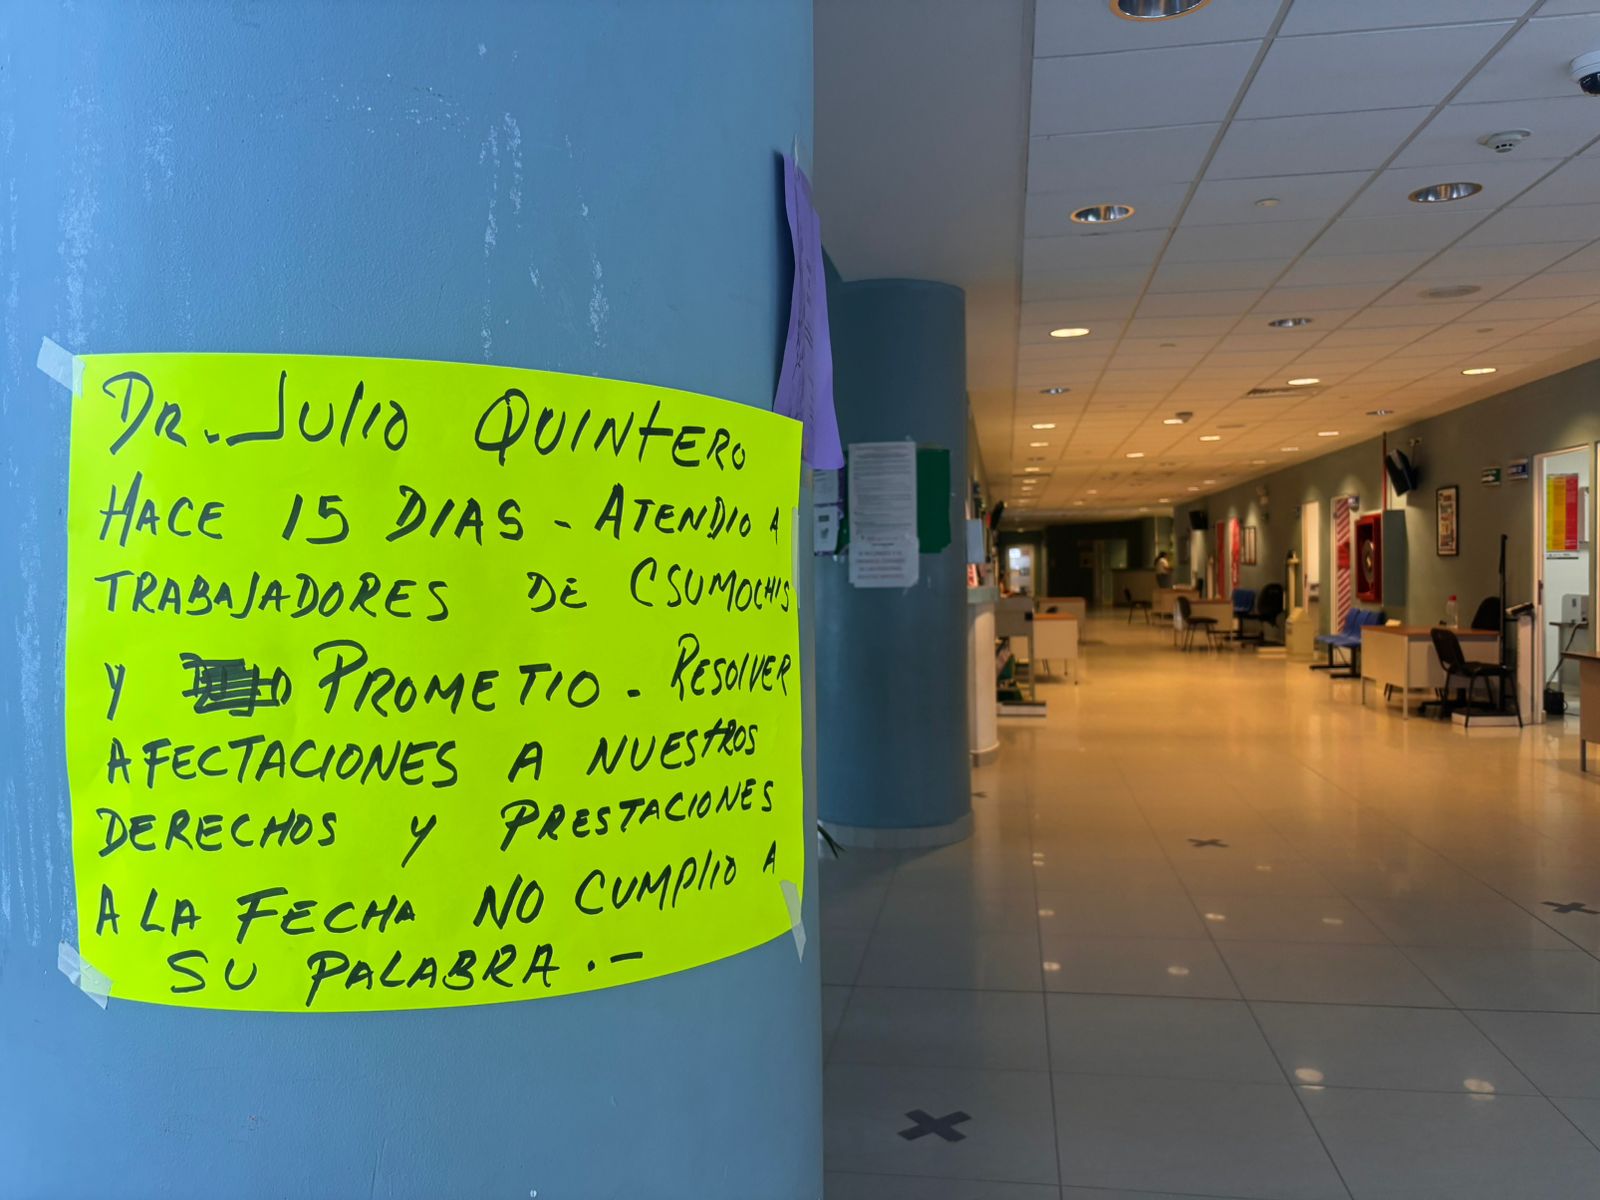 DR. JULIO QUINTERO
HACE 15 DIAS - ATENDIO A
TRABAJADORES DE CSUMOCHIS
Y PROMETIO - RESOLVER
AFECTACIONES A NUESTROS
DERECHOS Y PRESTACIONES
A LA FECHA NO CUMPLIO A
SU PALABRA . -